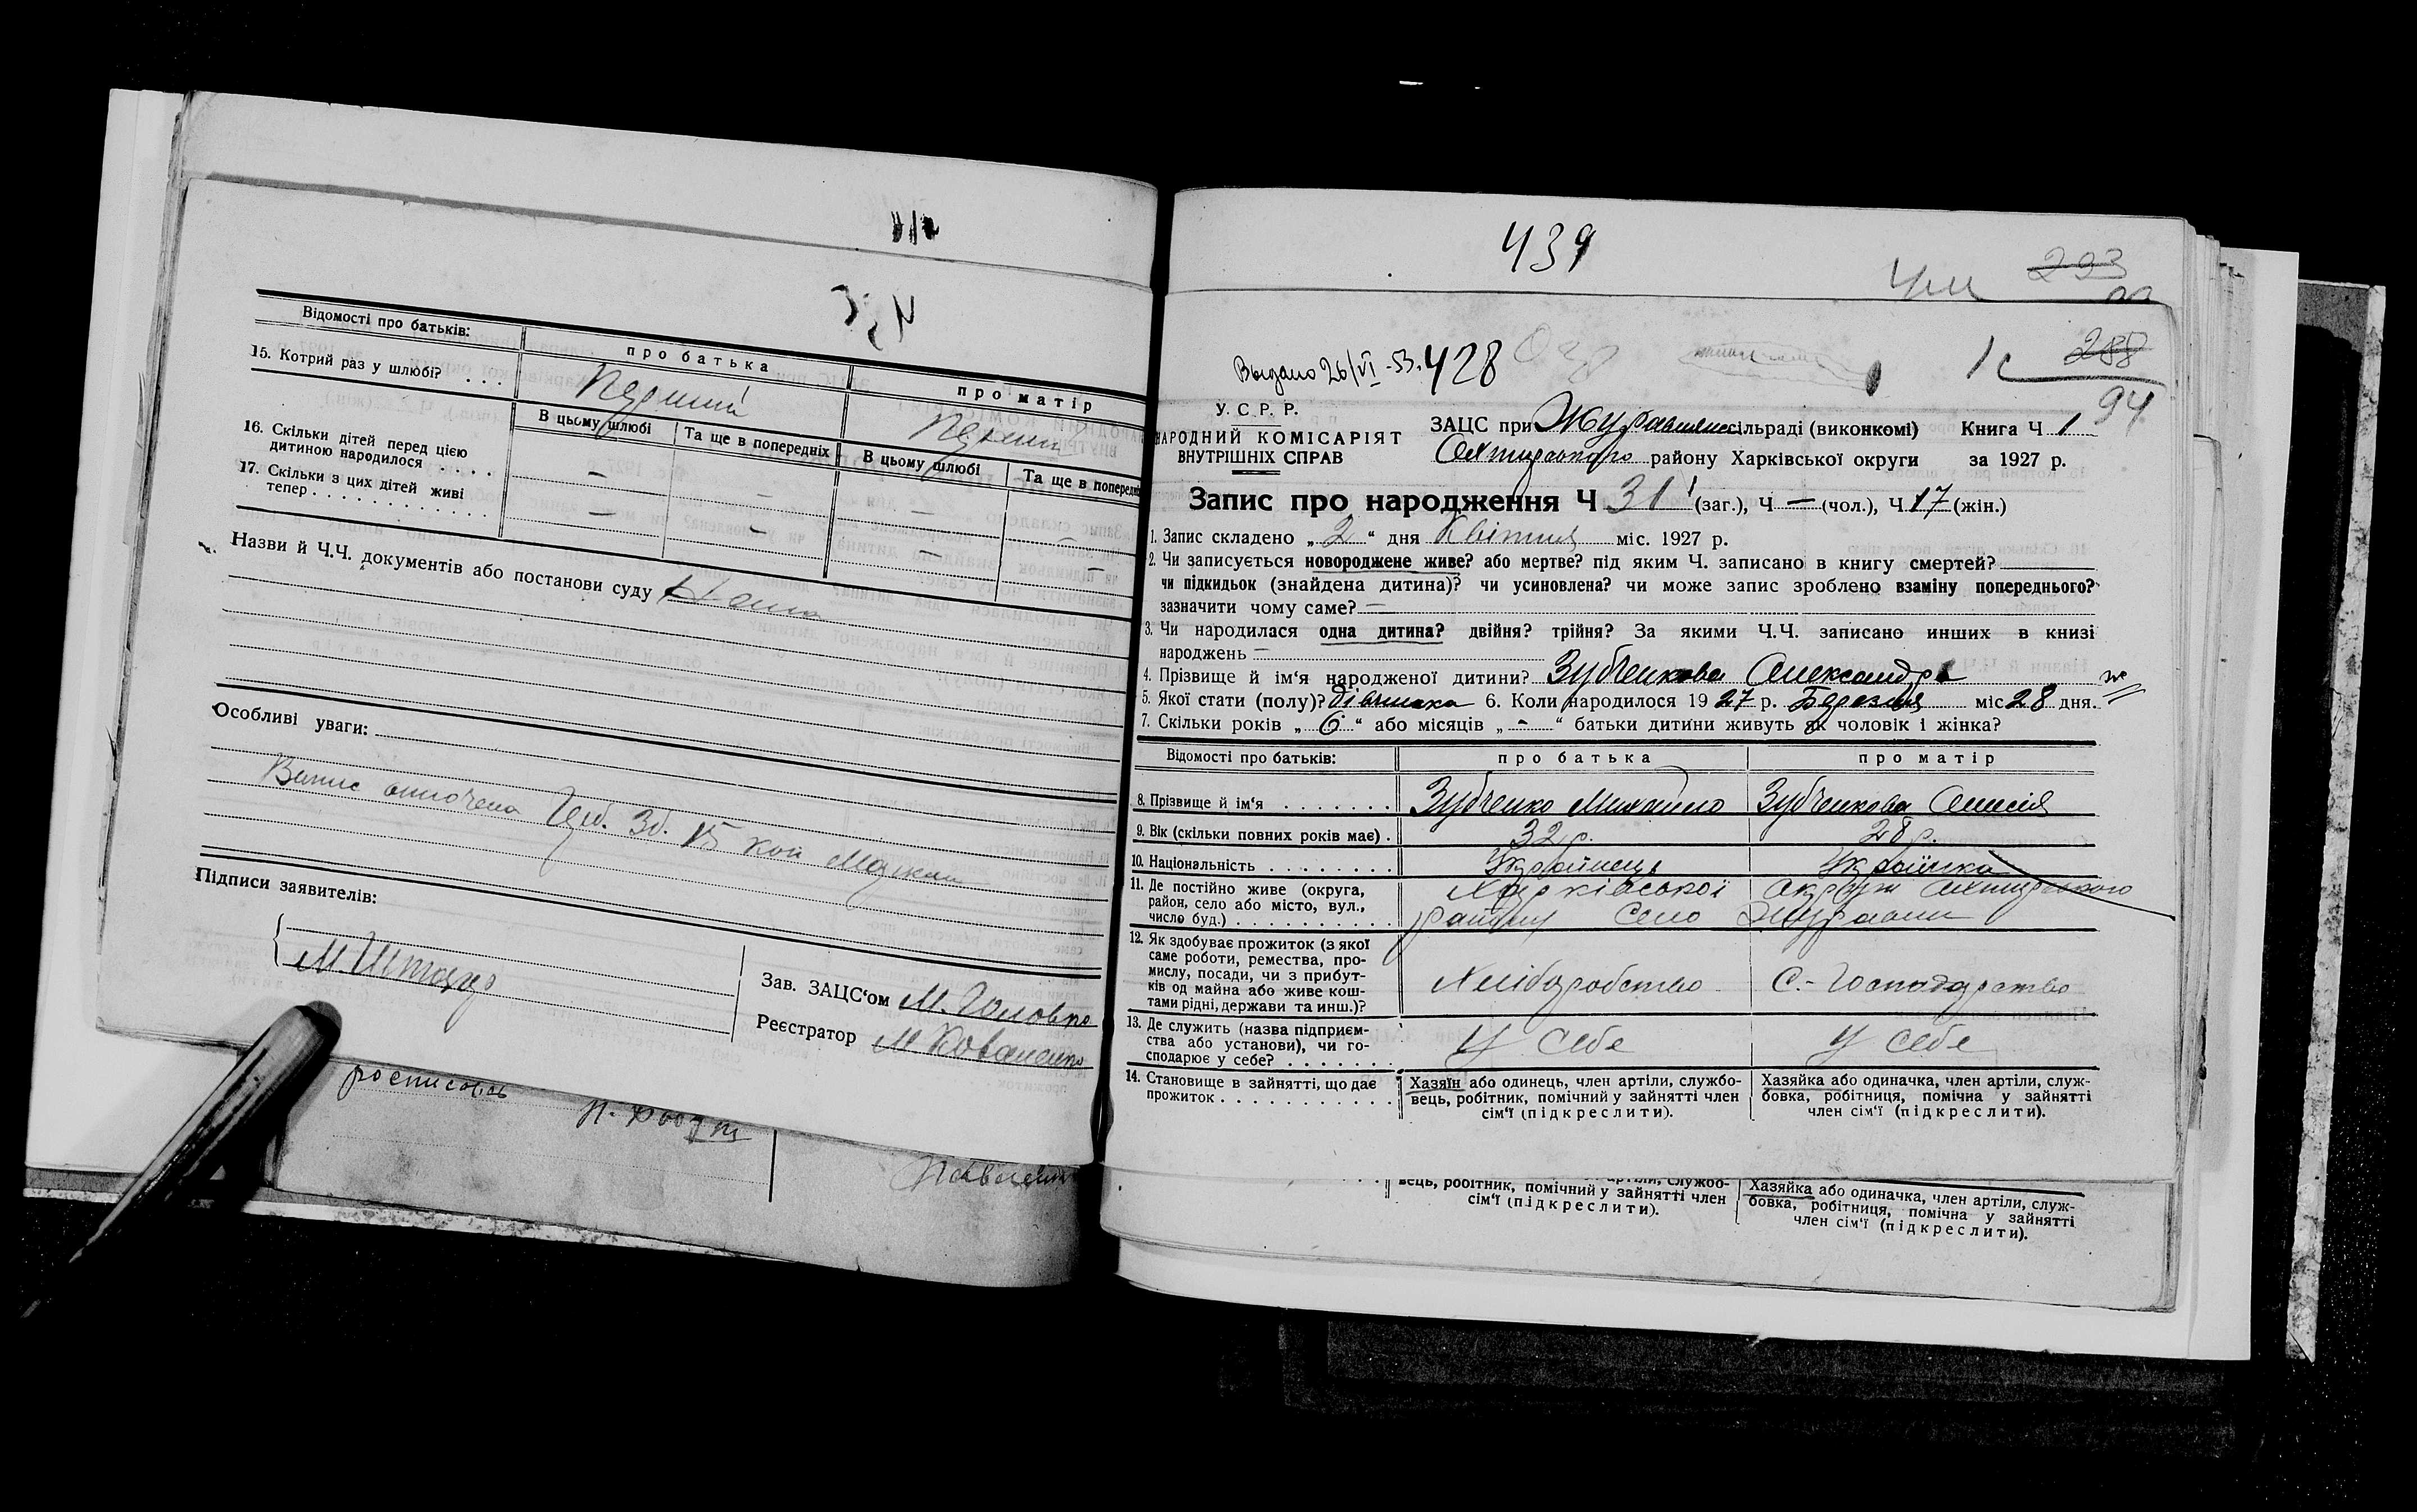 Відомості про батьків:
про батька
про матір
15. Котрий раз у шлюбі? . . .
Перший
Перший
В цьому шлюбі
Та ще в попередніх
В цьому шлюбі
Та ще в попередніх
16. Скільки дітей перед цією
дитиною народилося . . . .
— — — —
17. Скільки з цих дітей живі
тепер . . . . . . . . . .
— — — —
Назви й Ч.Ч. документів або постанови суду
Особливі уваги:
Випис
Зб. 15 коп
Підписи заявителів:
Зав. ЗАЦС'ом М. Головко
Реєстратор М Коваленко
росписалсь
439
293
Выдано 26/VI-53. 428
288
94
У. С. Р. Р.
НАРОДНИЙ КОМІСАРІЯТ
ВНУТРІШНІХ СПРАВ
ЗАЦС при сільраді (виконкомі) Книга Ч 1
Охтирського району Харківської округи за 1927 р.
Запис про народження Ч 31 (заг.), Ч — (чол.), Ч 17 (жін.)
1. Запис складено „ 2 “ дня Квітня міс. 1927 р.
2. Чи записується новороджене живе? або мертве? під яким Ч. записано в книгу смертей?
чи підкидьок (знайдена дитина)? чи усиновлена? чи може запис зроблено взаміну попереднього?
зазначити чому саме? —
3. Чи народилася одна дитина? двійня? трійня? За якими Ч.Ч. записано инших в книзі
народжень —
4. Прізвище й ім'я народженої дитини? Зубченкова Олександра
5. Якої стати (полу)? дівчинка 6. Коли народилося 1927 р. Березня міс 28 дня.
7. Скільки років „ 6 “ або місяців „ - “ батьки дитини живуть як чоловік і жінка?
Відомості про батьків:
про батька
про матір
8. Прізвище й ім'я . . . . . . .
Зубченко Михайло
Зубченкова Онисія
9. Вік (скільки повних років має) .
32 р.
28 р.
10. Національність . . . . . . . .
Українець
Українка
11. Де постійно живе (округа,
район, село або місто, вул.,
число буд.) . . . . . . . . . .
Харківської округи Охтирського
району село Журавни
12. Як здобуває прожиток (з якої
саме роботи, ремества, про-
мислу, посади, чи з прибут-
ків од майна або живе кош-
тами рідні, держави та инш.)?
Хліборобство
С.-Господарство
13. Де служить (назва підприєм-
ства або установи), чи го-
сподарює у себе? . . . . . . .
У себе
У себе
14. Становище в зайнятті, що дає
прожиток . . . . . . . . . . .
Хазяїн або одинець, член артіли, службо-
вець, робітник, помічний у зайнятті член
сім'ї (підкреслити).
Хазяйка або одиначка, член артіли, служ-
бовка, робітниця, помічна у зайнятті
член сім'ї (підкреслити).
вець, робітник, помічний у зайнятті член
сім'ї (підкреслити).
Хазяйка або одиначка, член артіли, служ-
бовка, робітниця, помічна у зайнятті
член сім'ї (підкреслити).